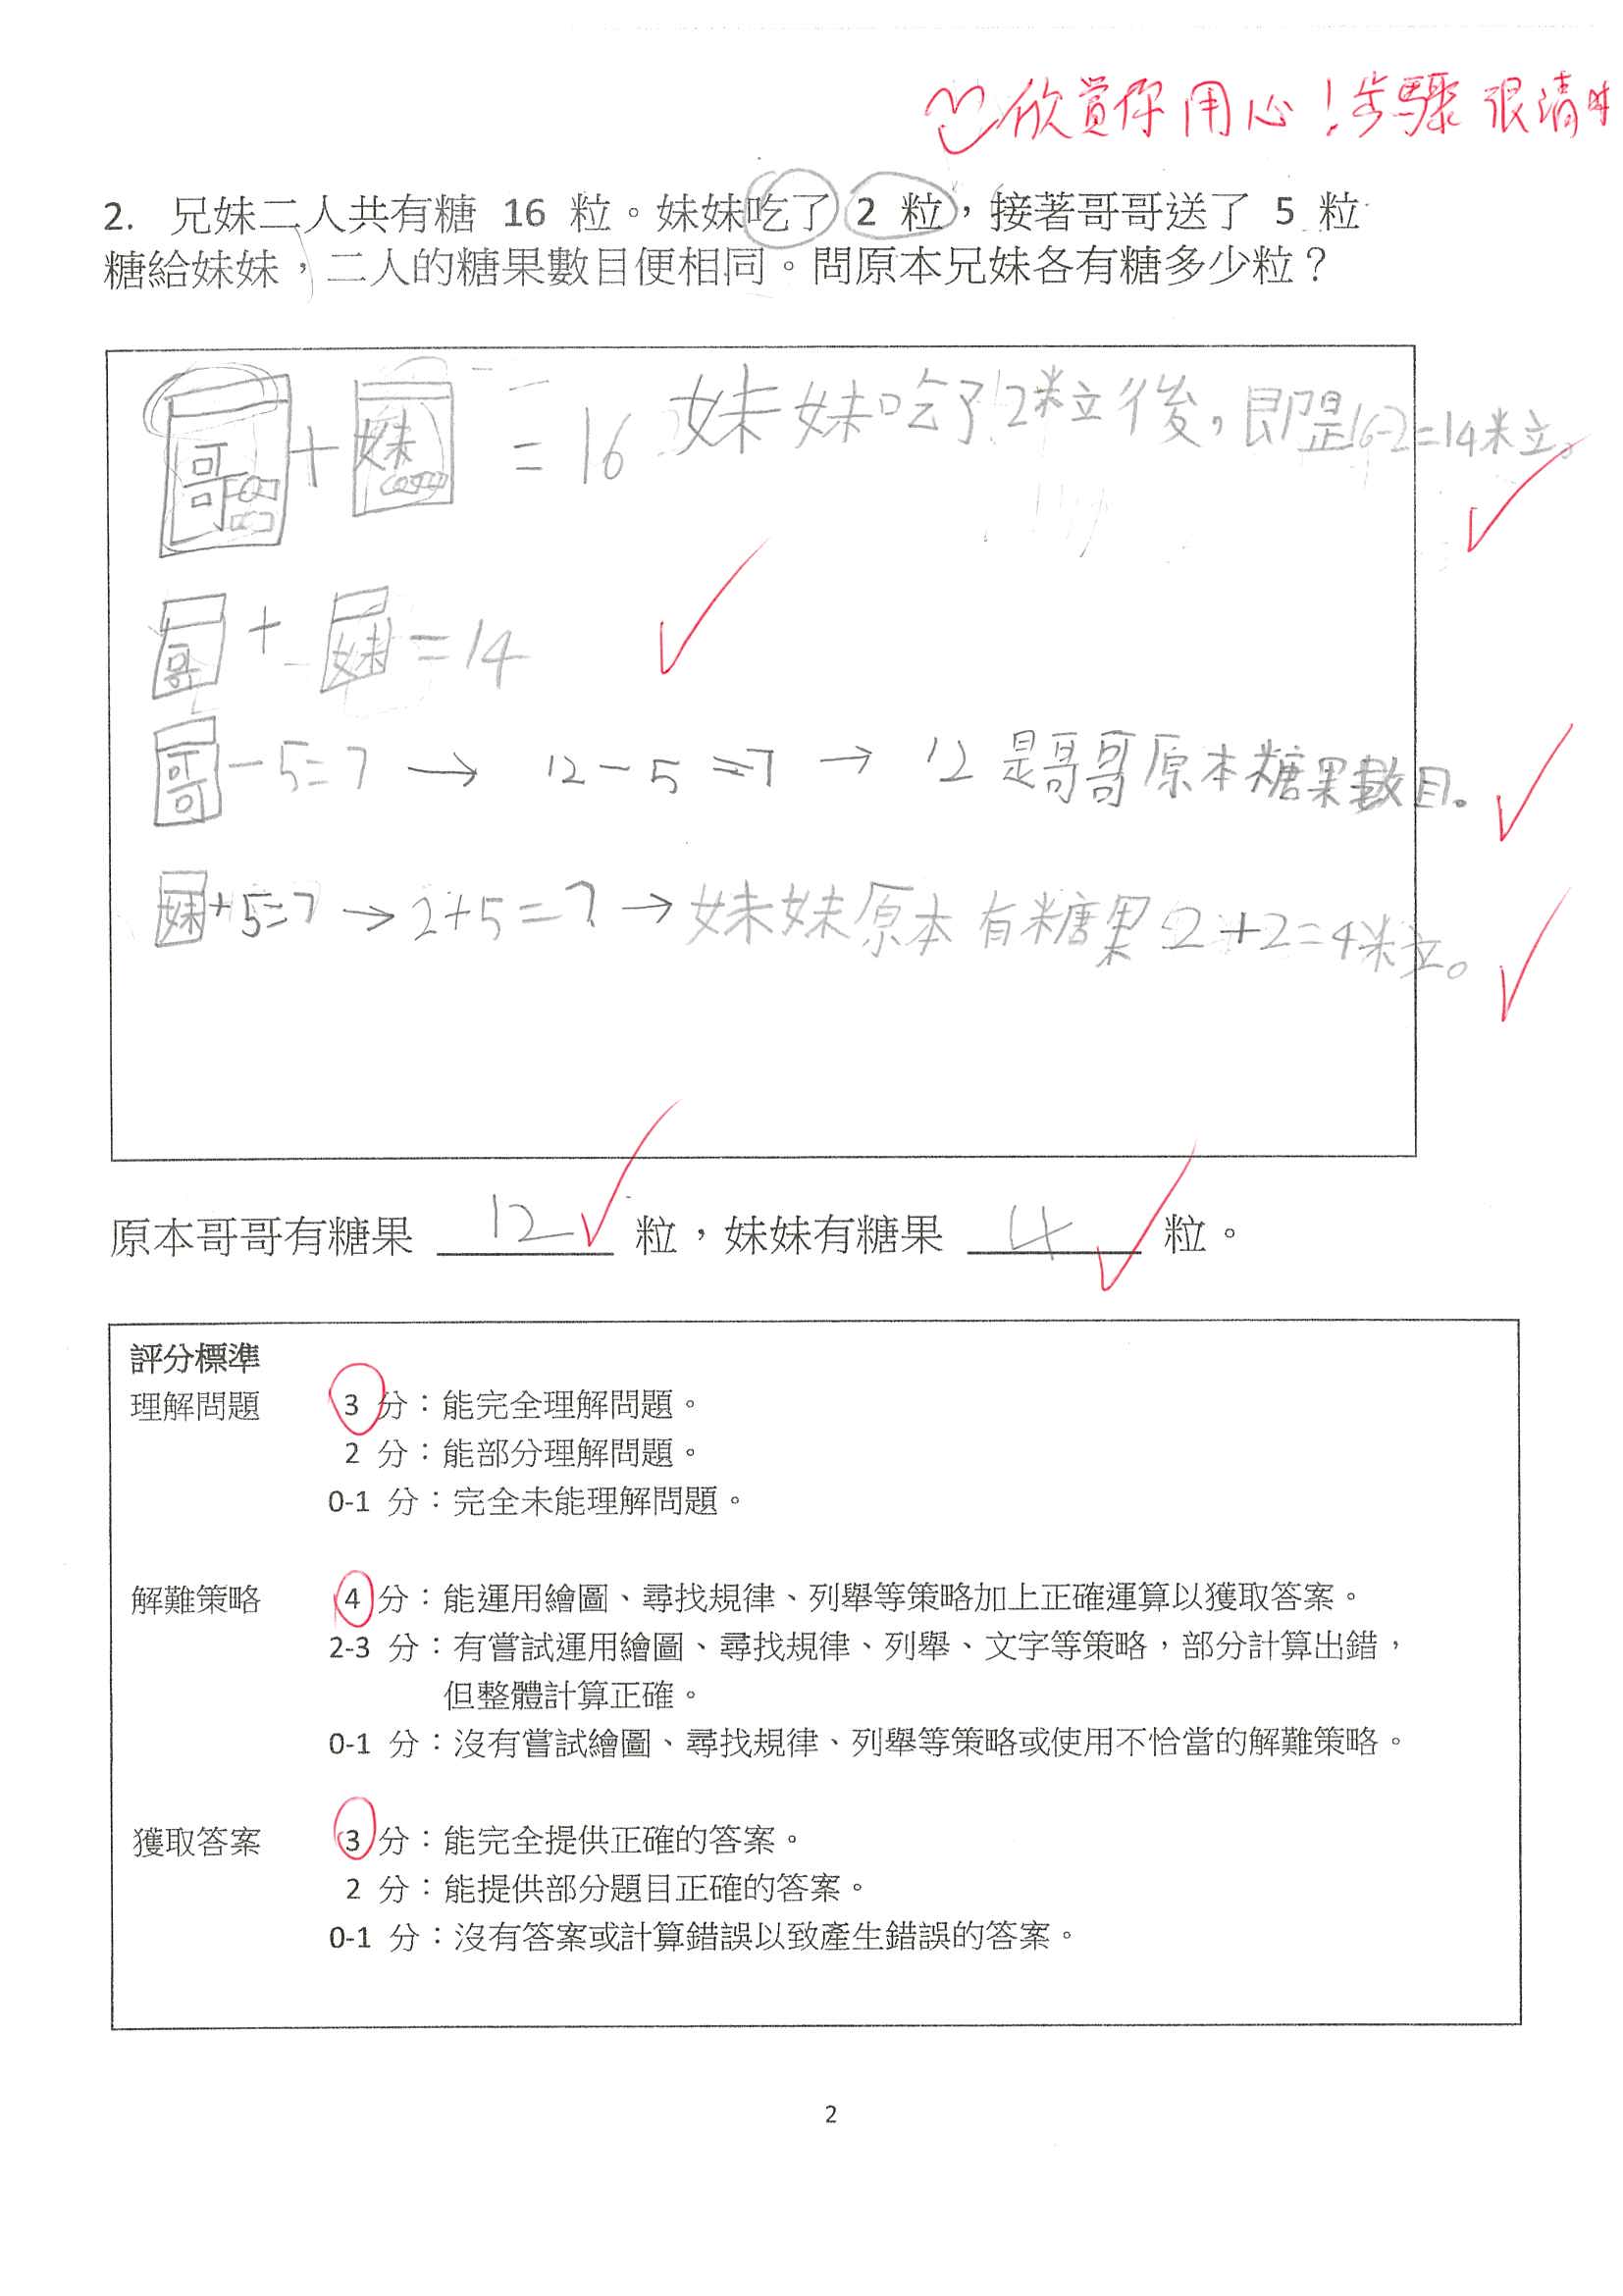 欣賞你用心！步驟很清
2. 兄妹二人共有糖 16 粒。妹妹吃了 2 粒，接著哥哥送了 5 粒
糖給妹妹，二人的糖果數目便相同。問原本兄妹各有糖多少粒？
哥 + 妹 = 16 妹妹吃了2粒後，即是16-2=14粒。
哥 + 妹 = 14
哥 - 5 = 7 → 12 - 5 = 7 → 12 是哥哥原本糖果數目。
妹 + 5 = 7 → 2 + 5 = 7 → 妹妹原本有糖果 2 + 2 = 4粒。
原本哥哥有糖果 12 粒，妹妹有糖果 4 粒。
評分標準
理解問題 3 分：能完全理解問題。
2 分：能部分理解問題。
0-1 分：完全未能理解問題。
解難策略 4 分：能運用繪圖、尋找規律、列舉等策略加上正確運算以獲取答案。
2-3 分：有嘗試運用繪圖、尋找規律、列舉、文字等策略，部分計算出錯，
但整體計算正確。
0-1 分：沒有嘗試繪圖、尋找規律、列舉等策略或使用不恰當的解難策略。
獲取答案 3 分：能完全提供正確的答案。
2 分：能提供部分題目正確的答案。
0-1 分：沒有答案或計算錯誤以致產生錯誤的答案。
2